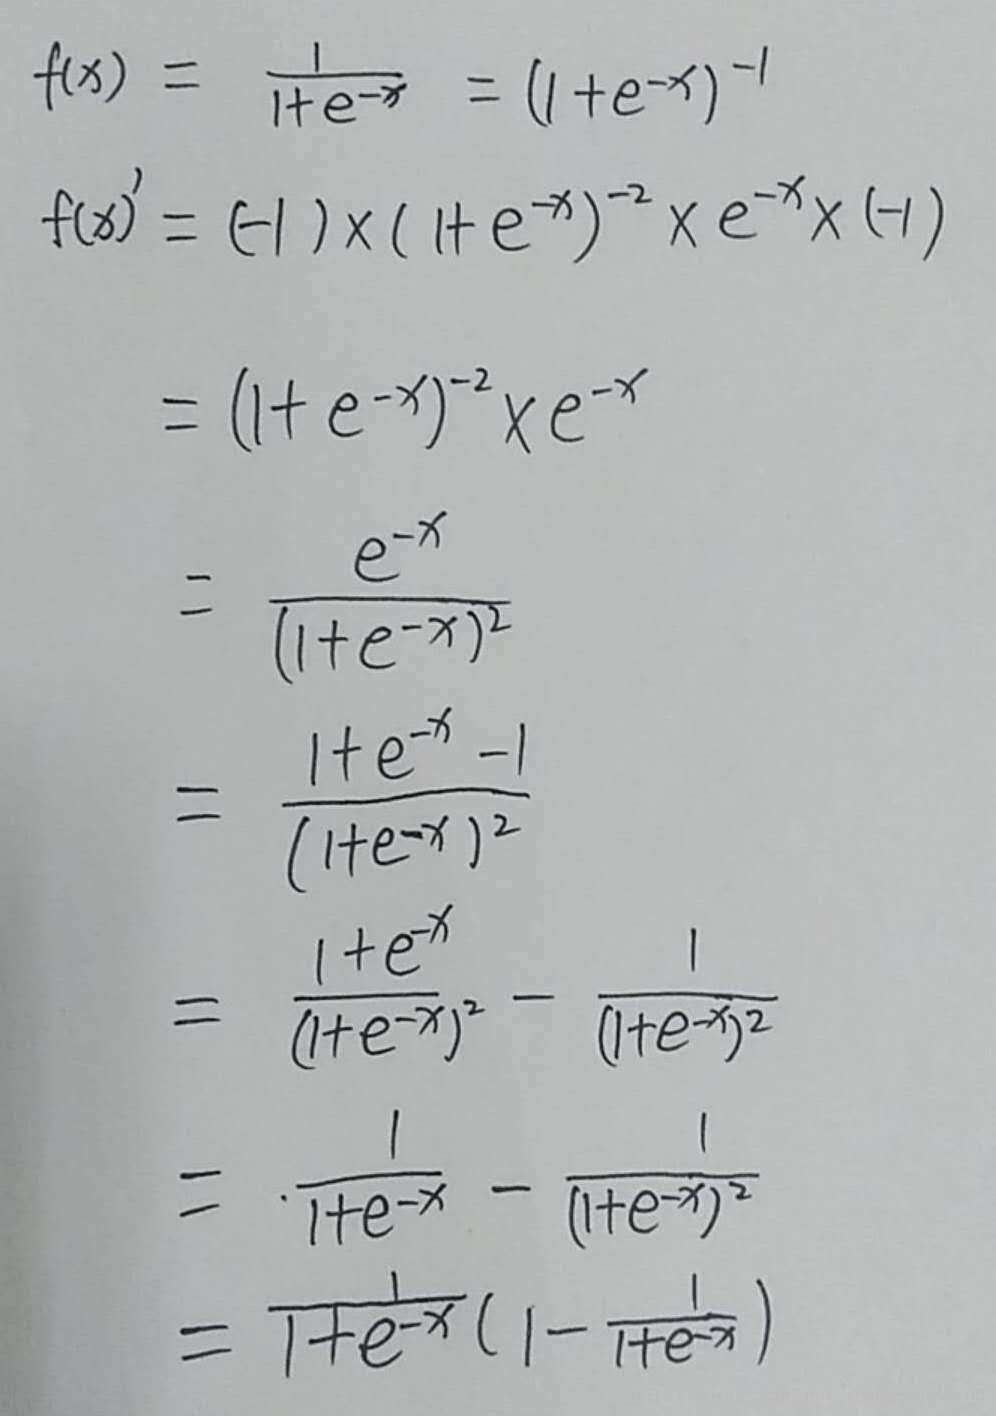 f(x) = \frac{1}{1+e^{-x}} = (1+e^{-x})^{-1}
f(x)' = (-1) × (1+e^{-x})^{-2} × e^{-x} × (-1)
= (1+e^{-x})^{-2} × e^{-x}
= \frac{e^{-x}}{(1+e^{-x})^2}
= \frac{1+e^{-x}-1}{(1+e^{-x})^2}
= \frac{1+e^{-x}}{(1+e^{-x})^2} - \frac{1}{(1+e^{-x})^2}
= \frac{1}{1+e^{-x}} - \frac{1}{(1+e^{-x})^2}
= \frac{1}{1+e^{-x}} (1 - \frac{1}{1+e^{-x}})